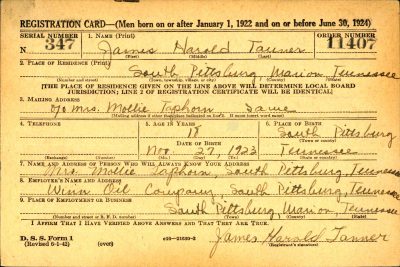 REGISTRATION CARD—(Men born on or after January 1, 1922 and on or before June 30, 1924)
SERIAL NUMBER 1. NAME (Print) ORDER NUMBER
N 347 James Harold Tanner 11407
(First) (Middle) (Last)
2. PLACE OF RESIDENCE (Print)
South Pittsburg, Marion, Tennessee
(Number and street) (Town, township, village, or city) (County) (State)
[THE PLACE OF RESIDENCE GIVEN ON THE LINE ABOVE WILL DETERMINE LOCAL BOARD
JURISDICTION; LINE 2 OF REGISTRATION CERTIFICATE WILL BE IDENTICAL]
3. MAILING ADDRESS
c/o Mrs. Mollie Taphorn Same
[Mailing address if other than place indicated on line 2. If same insert word same]
4. TELEPHONE 5. AGE IN YEARS 6. PLACE OF BIRTH
18 South Pittsburg
DATE OF BIRTH (Town or county)
Nov. 27, 1923 Tennessee
(Exchange) (Number) (Mo.) (Day) (Yr.) (State or country)
7. NAME AND ADDRESS OF PERSON WHO WILL ALWAYS KNOW YOUR ADDRESS
Mrs. Mollie Taphorn, South Pittsburg, Tennessee
8. EMPLOYER'S NAME AND ADDRESS
Winn Oil Company, South Pittsburg, Tennessee
9. PLACE OF EMPLOYMENT OR BUSINESS
South Pittsburg, Marion, Tennessee
(Number and street or R. F. D. number) (Town) (County) (State)
I AFFIRM THAT I HAVE VERIFIED ABOVE ANSWERS AND THAT THEY ARE TRUE.
D. S. S. Form 1
(Revised 6-1-42) (over) James Harold Tanner
(Registrant's signature)